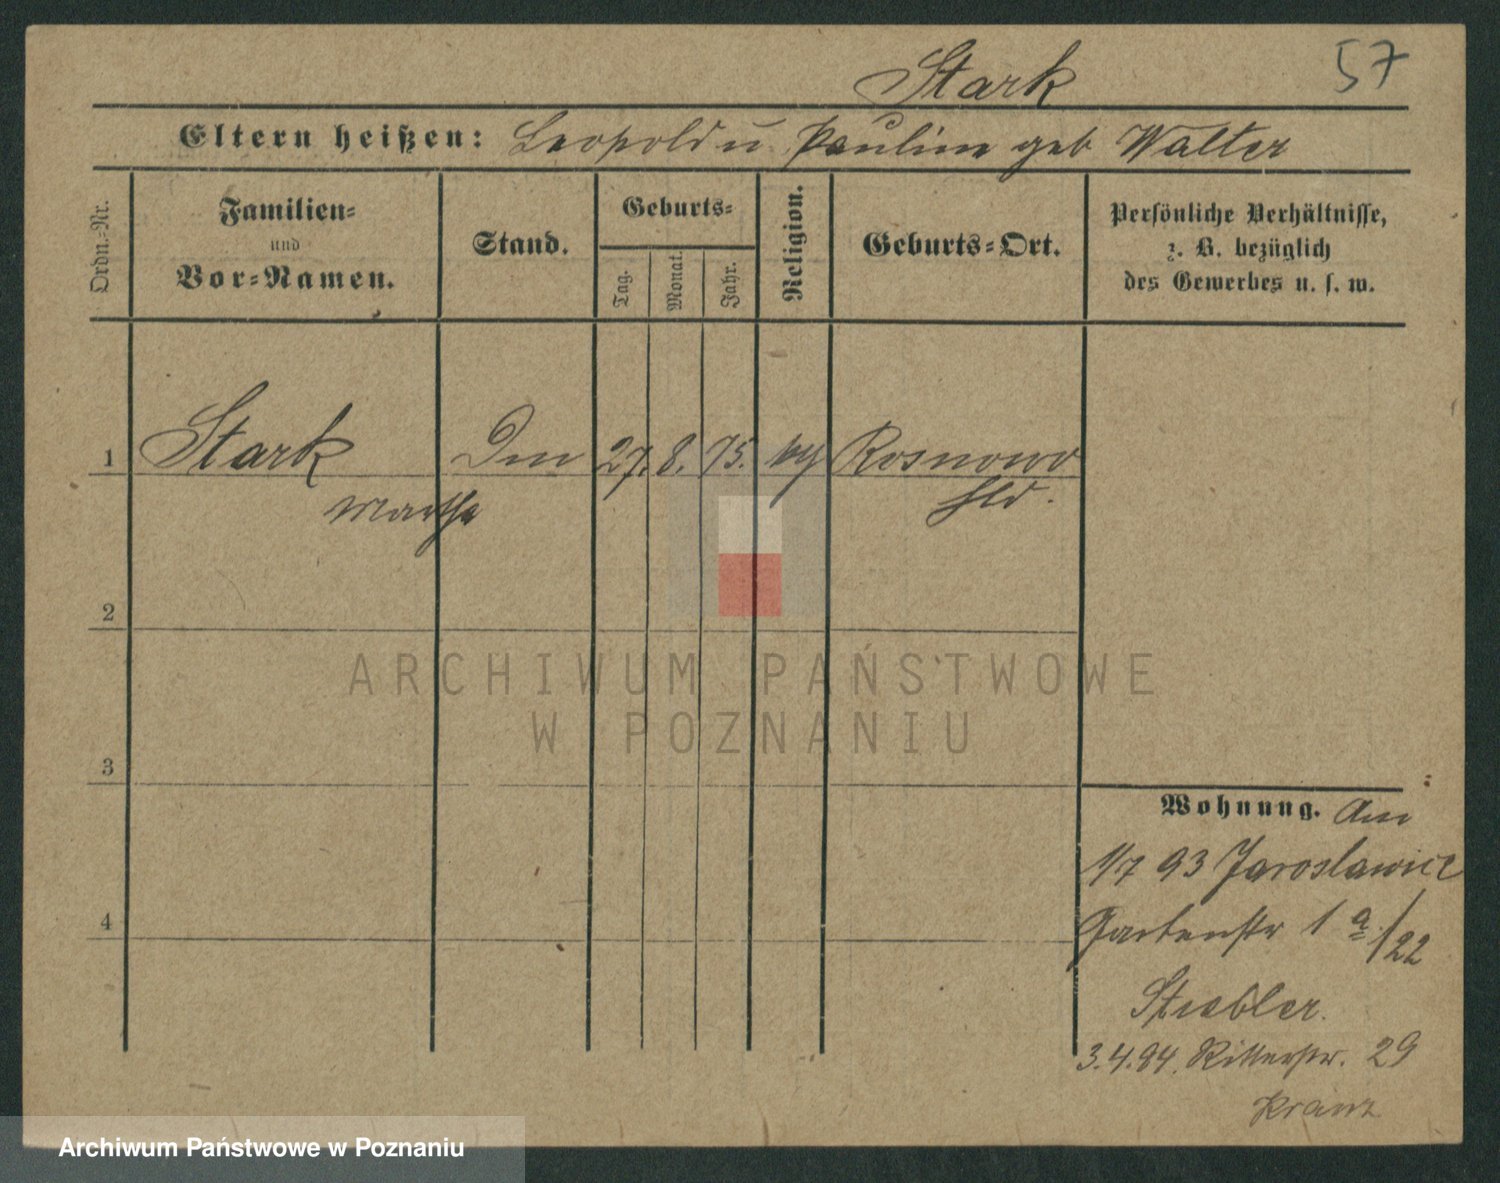 Stark 57
Eltern heißen: Leopold u Pauline geb Walter
Ordn.-Nr.
Familien-
und
Vor-Namen.
Stand.
Geburts-
Tag.
Monat.
Jahr.
Religion.
Geburts-Ort.
Persönliche Verhältnisse,
z. B. bezüglich
des Gewerbes u. s. w.
1 Stark 27. 8. 75. Rosnowo
Martha Hld.
2
3
4
Wohnung. Am
1/7 93 Jaroslawiec
Gartenstr 1 a/22
Stiebler.
3.4.94. Ritterstr. 29
Kranz
ARCHIWUM PAŃSTWOWE
W POZNANIU
Archiwum Państwowe w Poznaniu